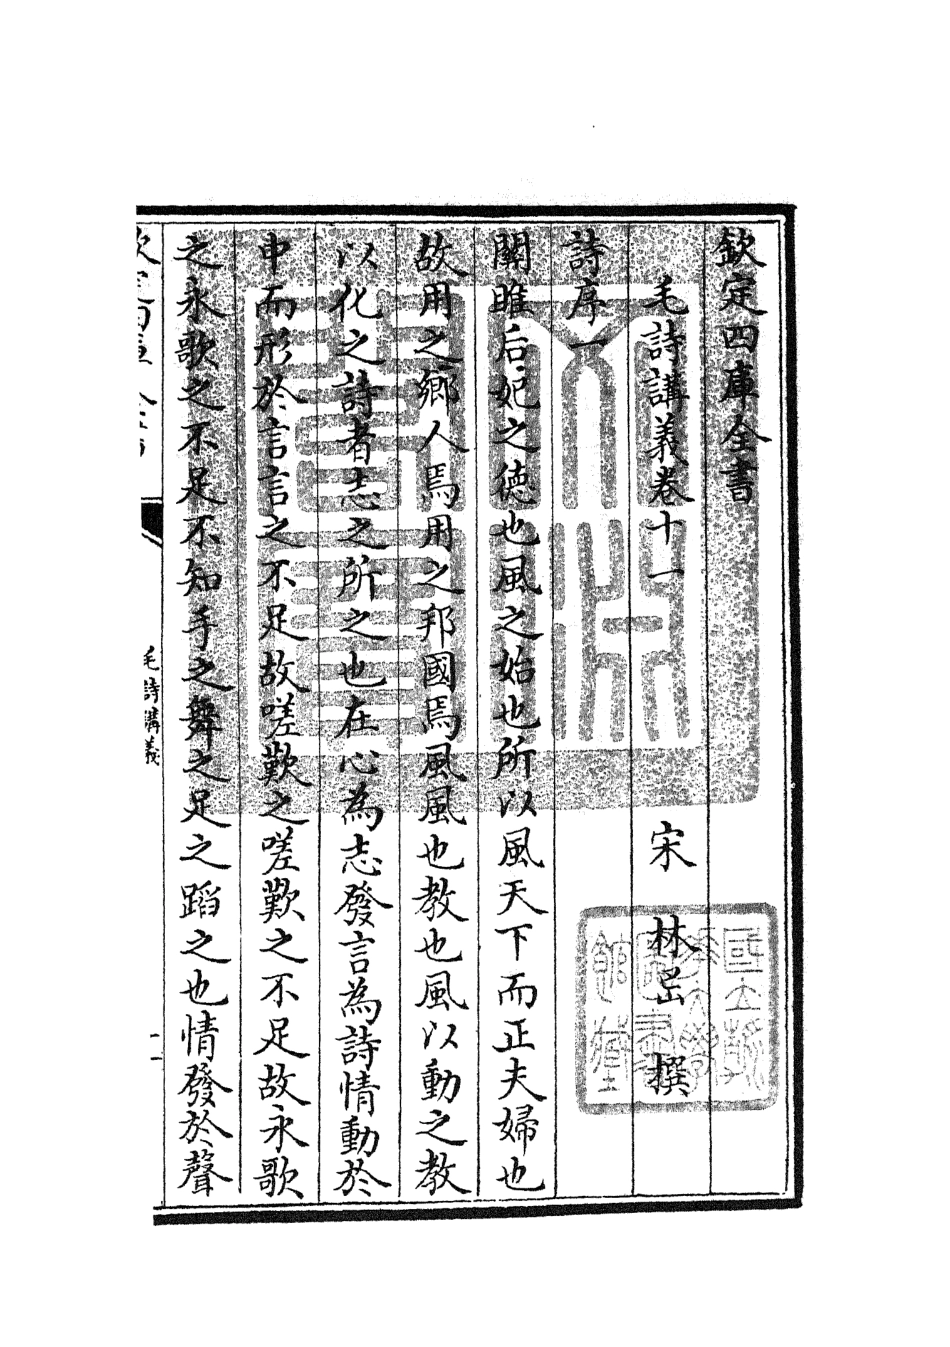 欽定四庫全書
毛詩講義卷十一　宋　林岊　撰
詩序一
關雎后妃之德也風之始也所以風天下而正夫婦也
故用之鄉人焉用之邦國焉風風也教也風以動之教
以化之詩者志之所之也在心為志發言為詩情動於
中而形於言言之不足故嗟歎之嗟歎之不足故永歌
之永歌之不足不知手之舞之足之蹈之也情發於聲
欽定四庫全書
毛詩講義
一